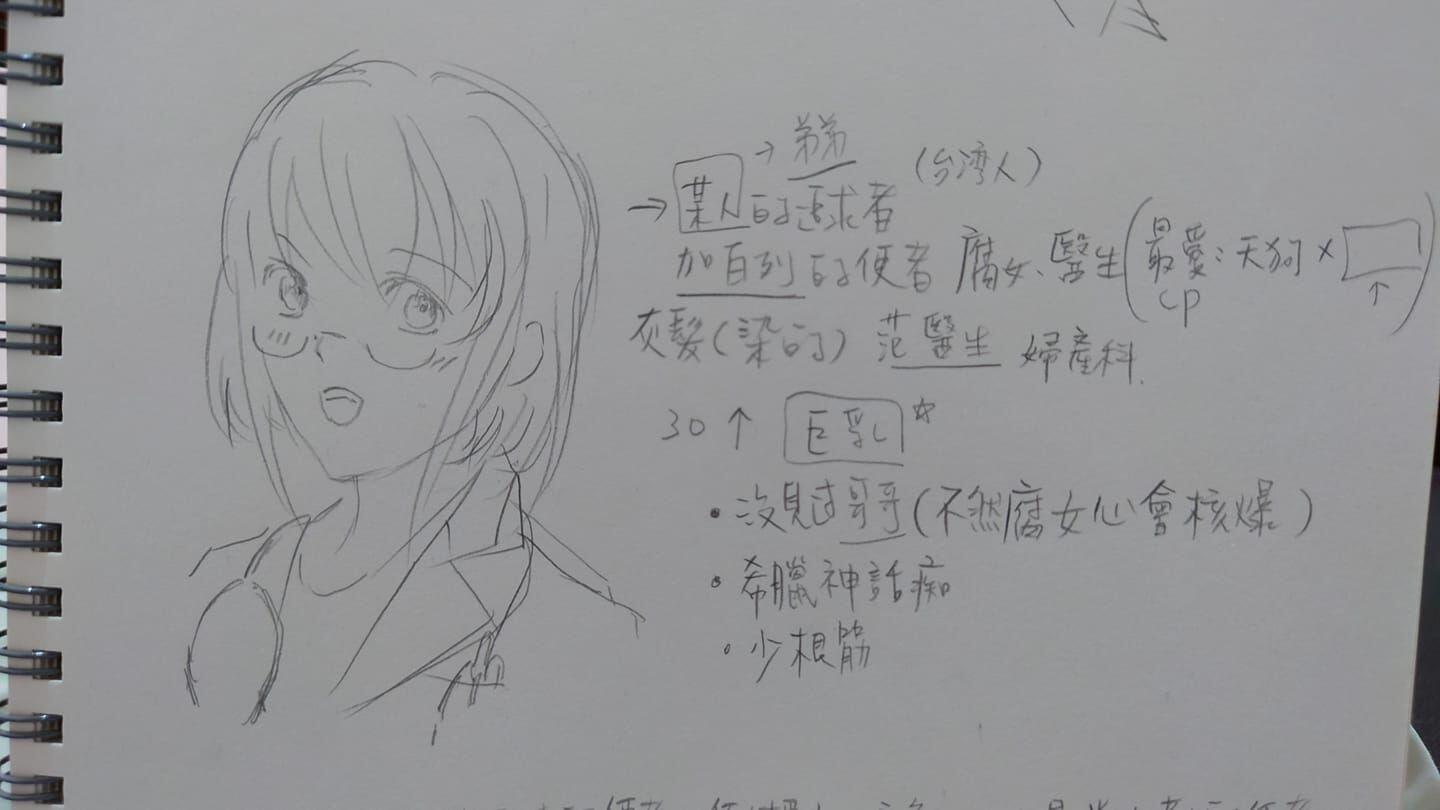 →弟弟 (台湾人)
→某人的追求者
加百列的使者 腐女、醫生(最愛:天狗×
cp ↑)
灰髮(染的) 范醫生 婦產科.
30↑ 巨乳☆
•沒見过哥哥(不然腐女心會核爆)
•希臘神話痴
•少根筋